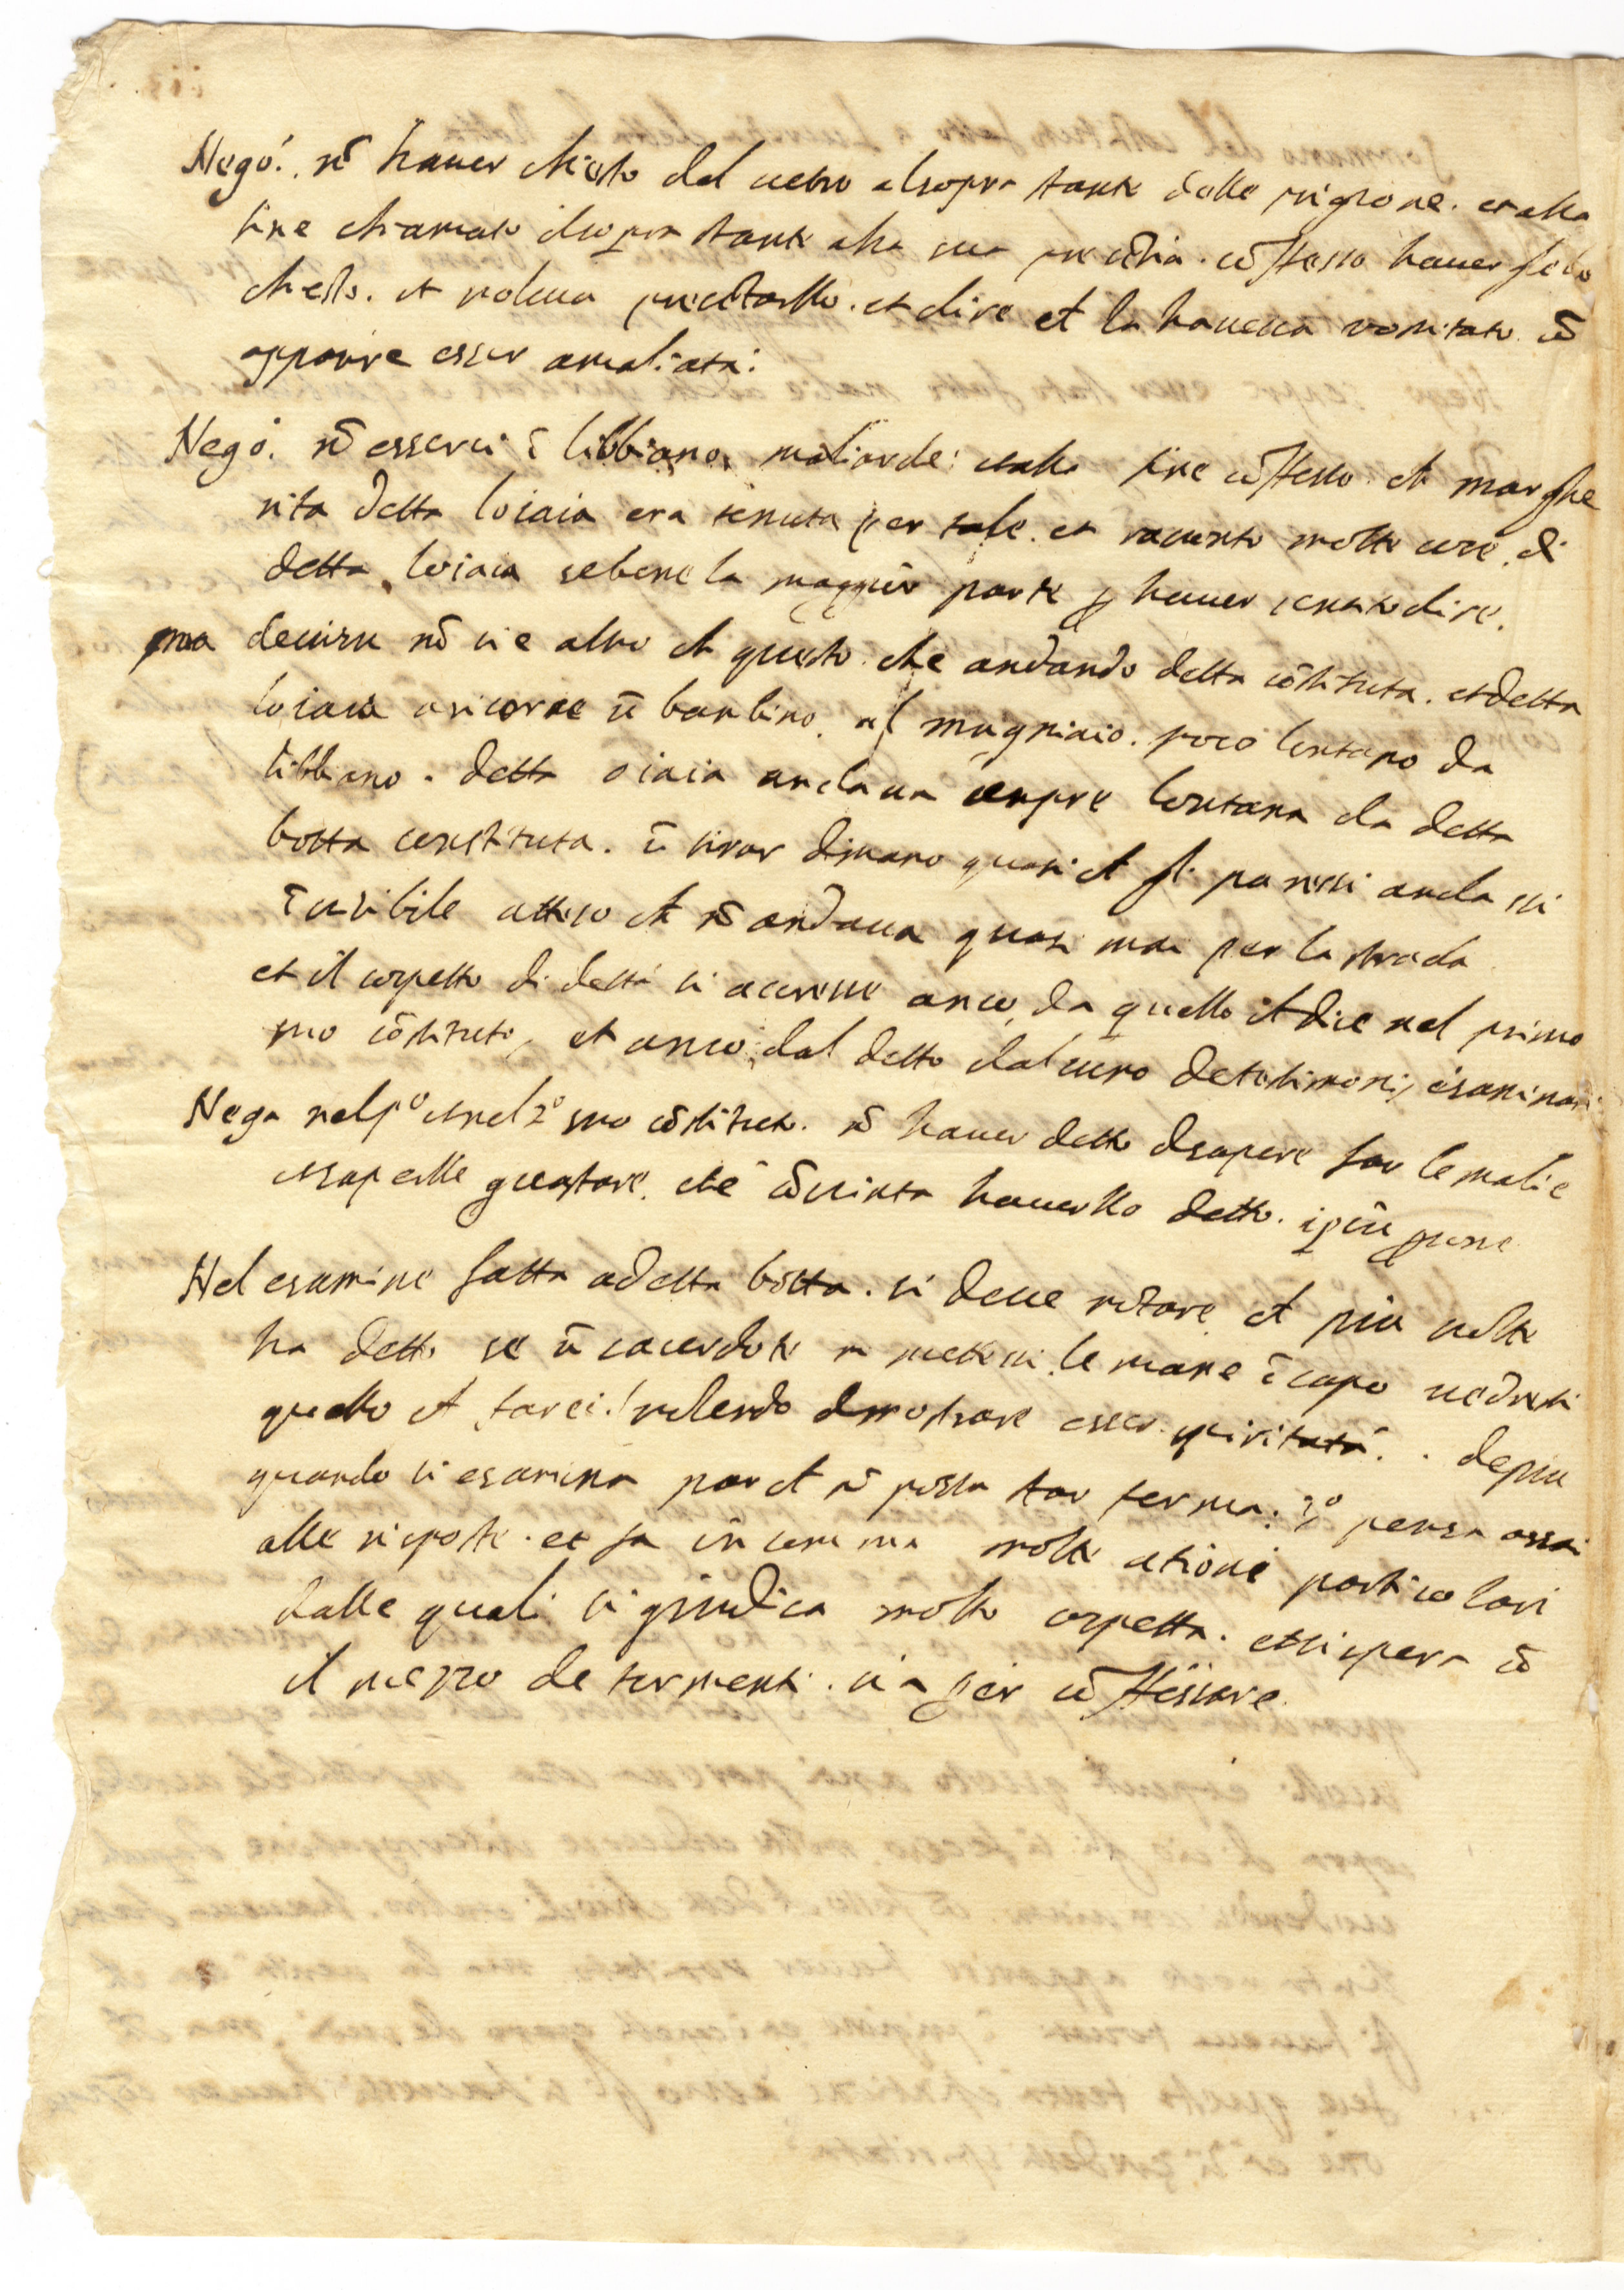 Nego. nō hauer chiesto del uetro al sopra stante delle prigione. et alla
fine chiamato il sopra stante alla sua presētia. cōfesso hauerglielo
chiesto. et voleua pestarllo. et dire ch la haueua vomitato. cō
apporre esser amaliata:
Nego. nō esserui ī libbiano maliarde: et alla fine cōfesso. ch marghe
rita detta losiaia era tenuta per tale. et raconto molte cose. di
detta losiaia sebene la maggior parte ꝑ hauer sentito dire.
ma de uisu nō vi e altro ch questo. che andando detta cōstituta. et detta
losiaia a ricorre ū banbino. al mugniaio. poco lontano da
libbiano. detta osiaia andaua senpre lontana da detta
botta constituta. ū tirar di mano quasi ch gli paressi andassi
īuisibile atteso ch nō andaua quasi mai per la strada
et il sospetto di detta si acresce anco da quello ch dice nel primo
suo cōstituto, et anco dal detto dalcuno de testimoni esaminati
Nega nel pº et nel 2º suo cōstituto. nō hauer detto di sapere far le malie
et saperlle guastare. che cōuinta hauerllo detto. ī più ꝑsone
Nel esamine fatta a detta botta. si deue notare ch più volte
ha detto se ū sacerdote mi mettessi le mane ī capo vedresti
quello ch farei. volendo dimostrare esser spiritata. . depiu
quando si esamina par ch nō possa star ferma. 3º pensa assai
alle risposte. et fa in somma molte ationi particolari
dalle quali si giudica molto sospetta. et si spera cō
il mezzo de tormenti. sia per cōfessare.